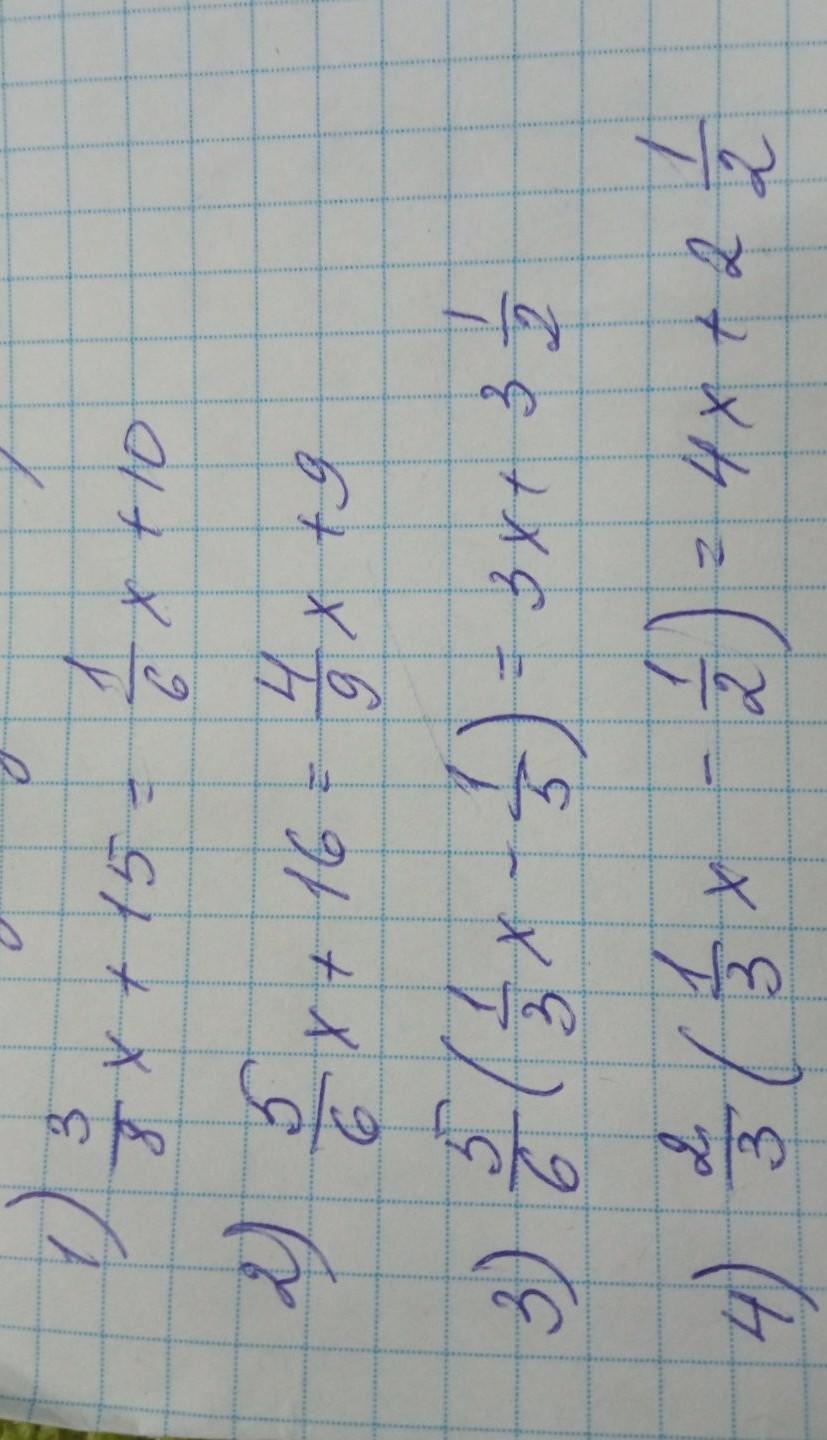 1) 3/8 x + 15 = 1/6 x + 10
2) 5/6 x + 16 = 4/9 x + 9
3) 5/6 (1/3 x - 1/3) = 3x + 3 1/2
4) 2/3 (1/3 x - 1/2) = 4x + 2 1/2